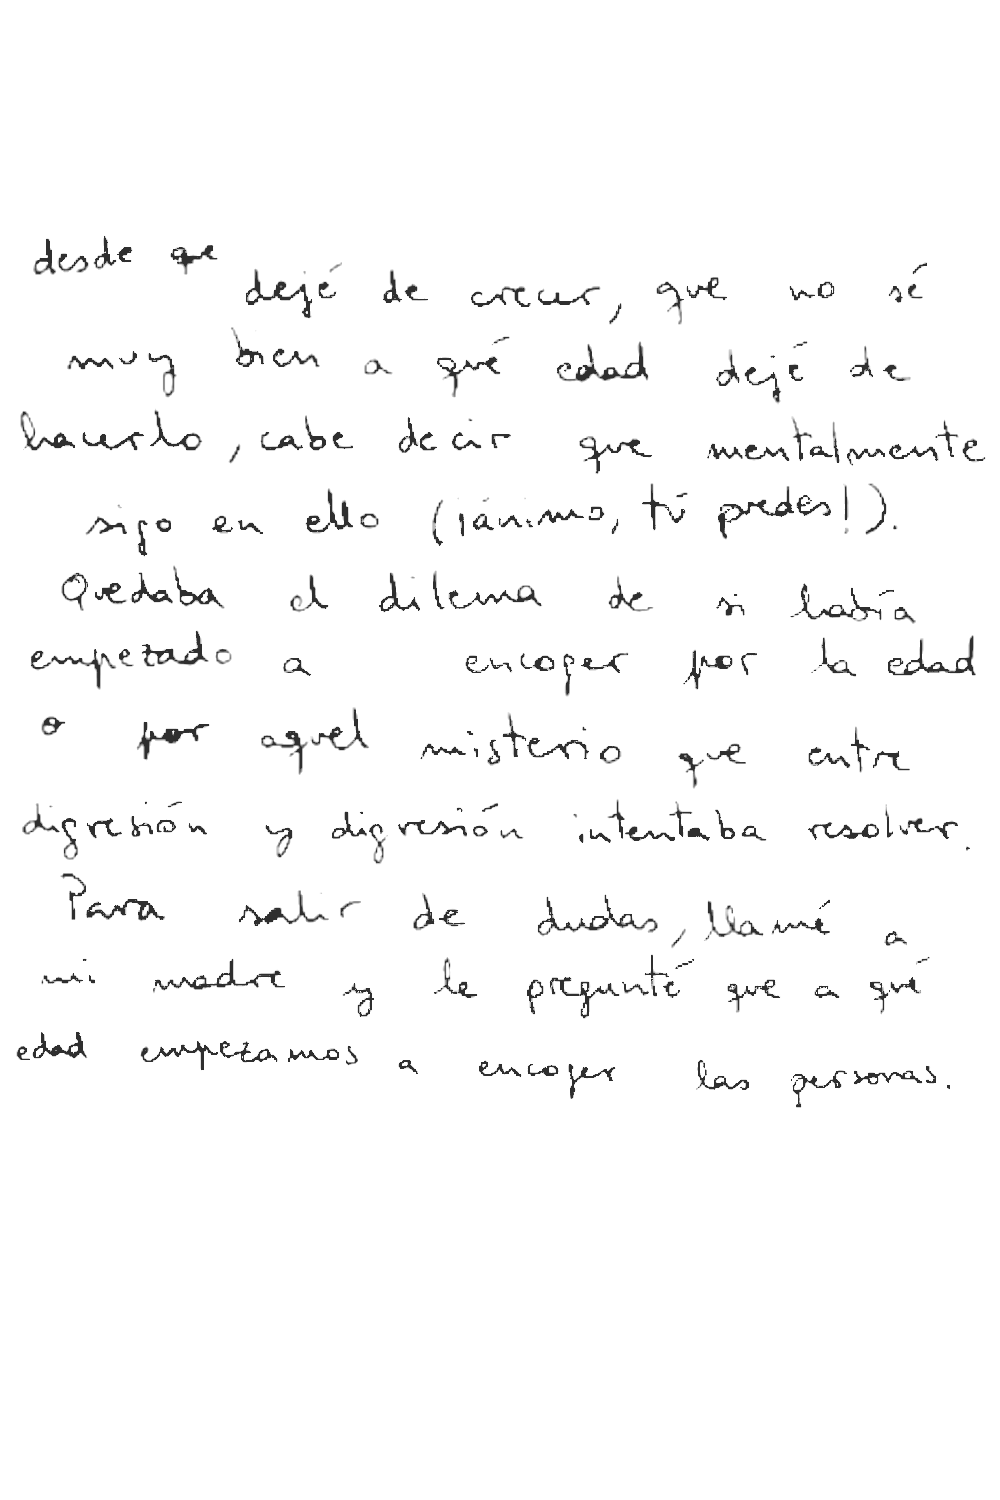 desde que
dejé de crecer, que no sé
muy bien a qué edad dejé de
hacerlo, cabe decir que mentalmente
sigo en ello (¡ánimo, tú puedes!).
Quedaba el dilema de si había
empezado a encoger por la edad
o por aquel misterio que entre
digresión y digresión intentaba resolver.
Para salir de dudas, llamé a
mi madre y le pregunté que a qué
edad empezamos a encoger las personas.